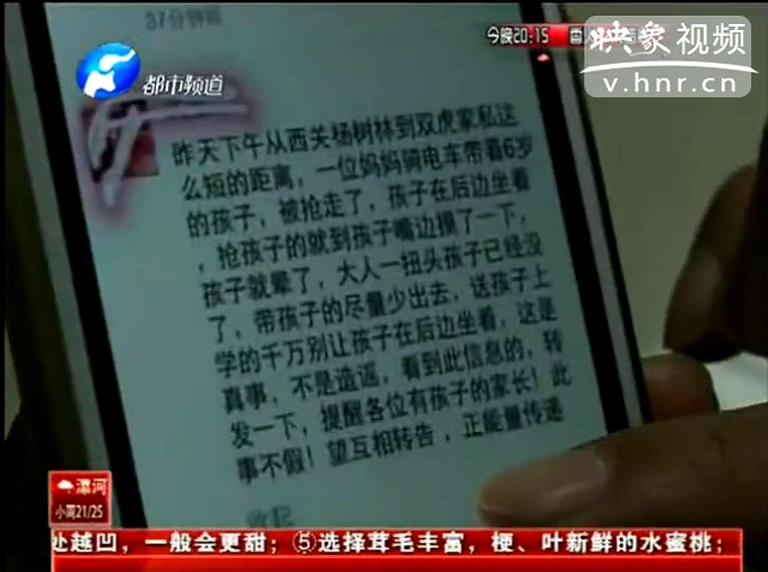 37分钟前
今晚20:15
映象视频
v.hnr.cn
都市频道
昨天下午从西关杨树林到双虎家私这
么短的距离，一位妈妈骑电车带着6岁
的孩子，被抢走了，孩子在后边坐着
，抢孩子的就到孩子嘴边摸了一下，
孩子就晕了，大人一扭头孩子已经没
了，带孩子的尽量少出去，送孩子上
学的千万别让孩子在后边坐着，这是
真事，不是造谣，看到此信息的，转
发一下，提醒各位有孩子的家长！此
事不假！望互相转告，正能量传递
收起
漯河
小雨21/25
处越凹，一般会更甜；⑤选择茸毛丰富，梗、叶新鲜的水蜜桃；